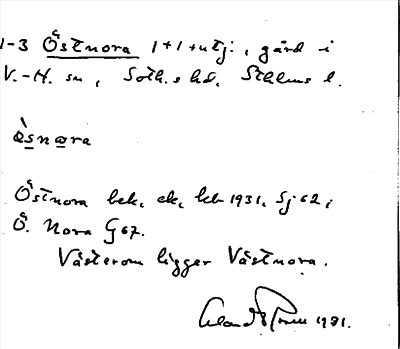 1-3 Östnora 1+1+utj., gård i
V.-H. sn, Soth.s hd, Sthlms l.
òsnωra
Östnora bek. ek. kbr 1931. Sj 62,
Ö. Nora G 67.
Västerom ligger Västnora.
1931.